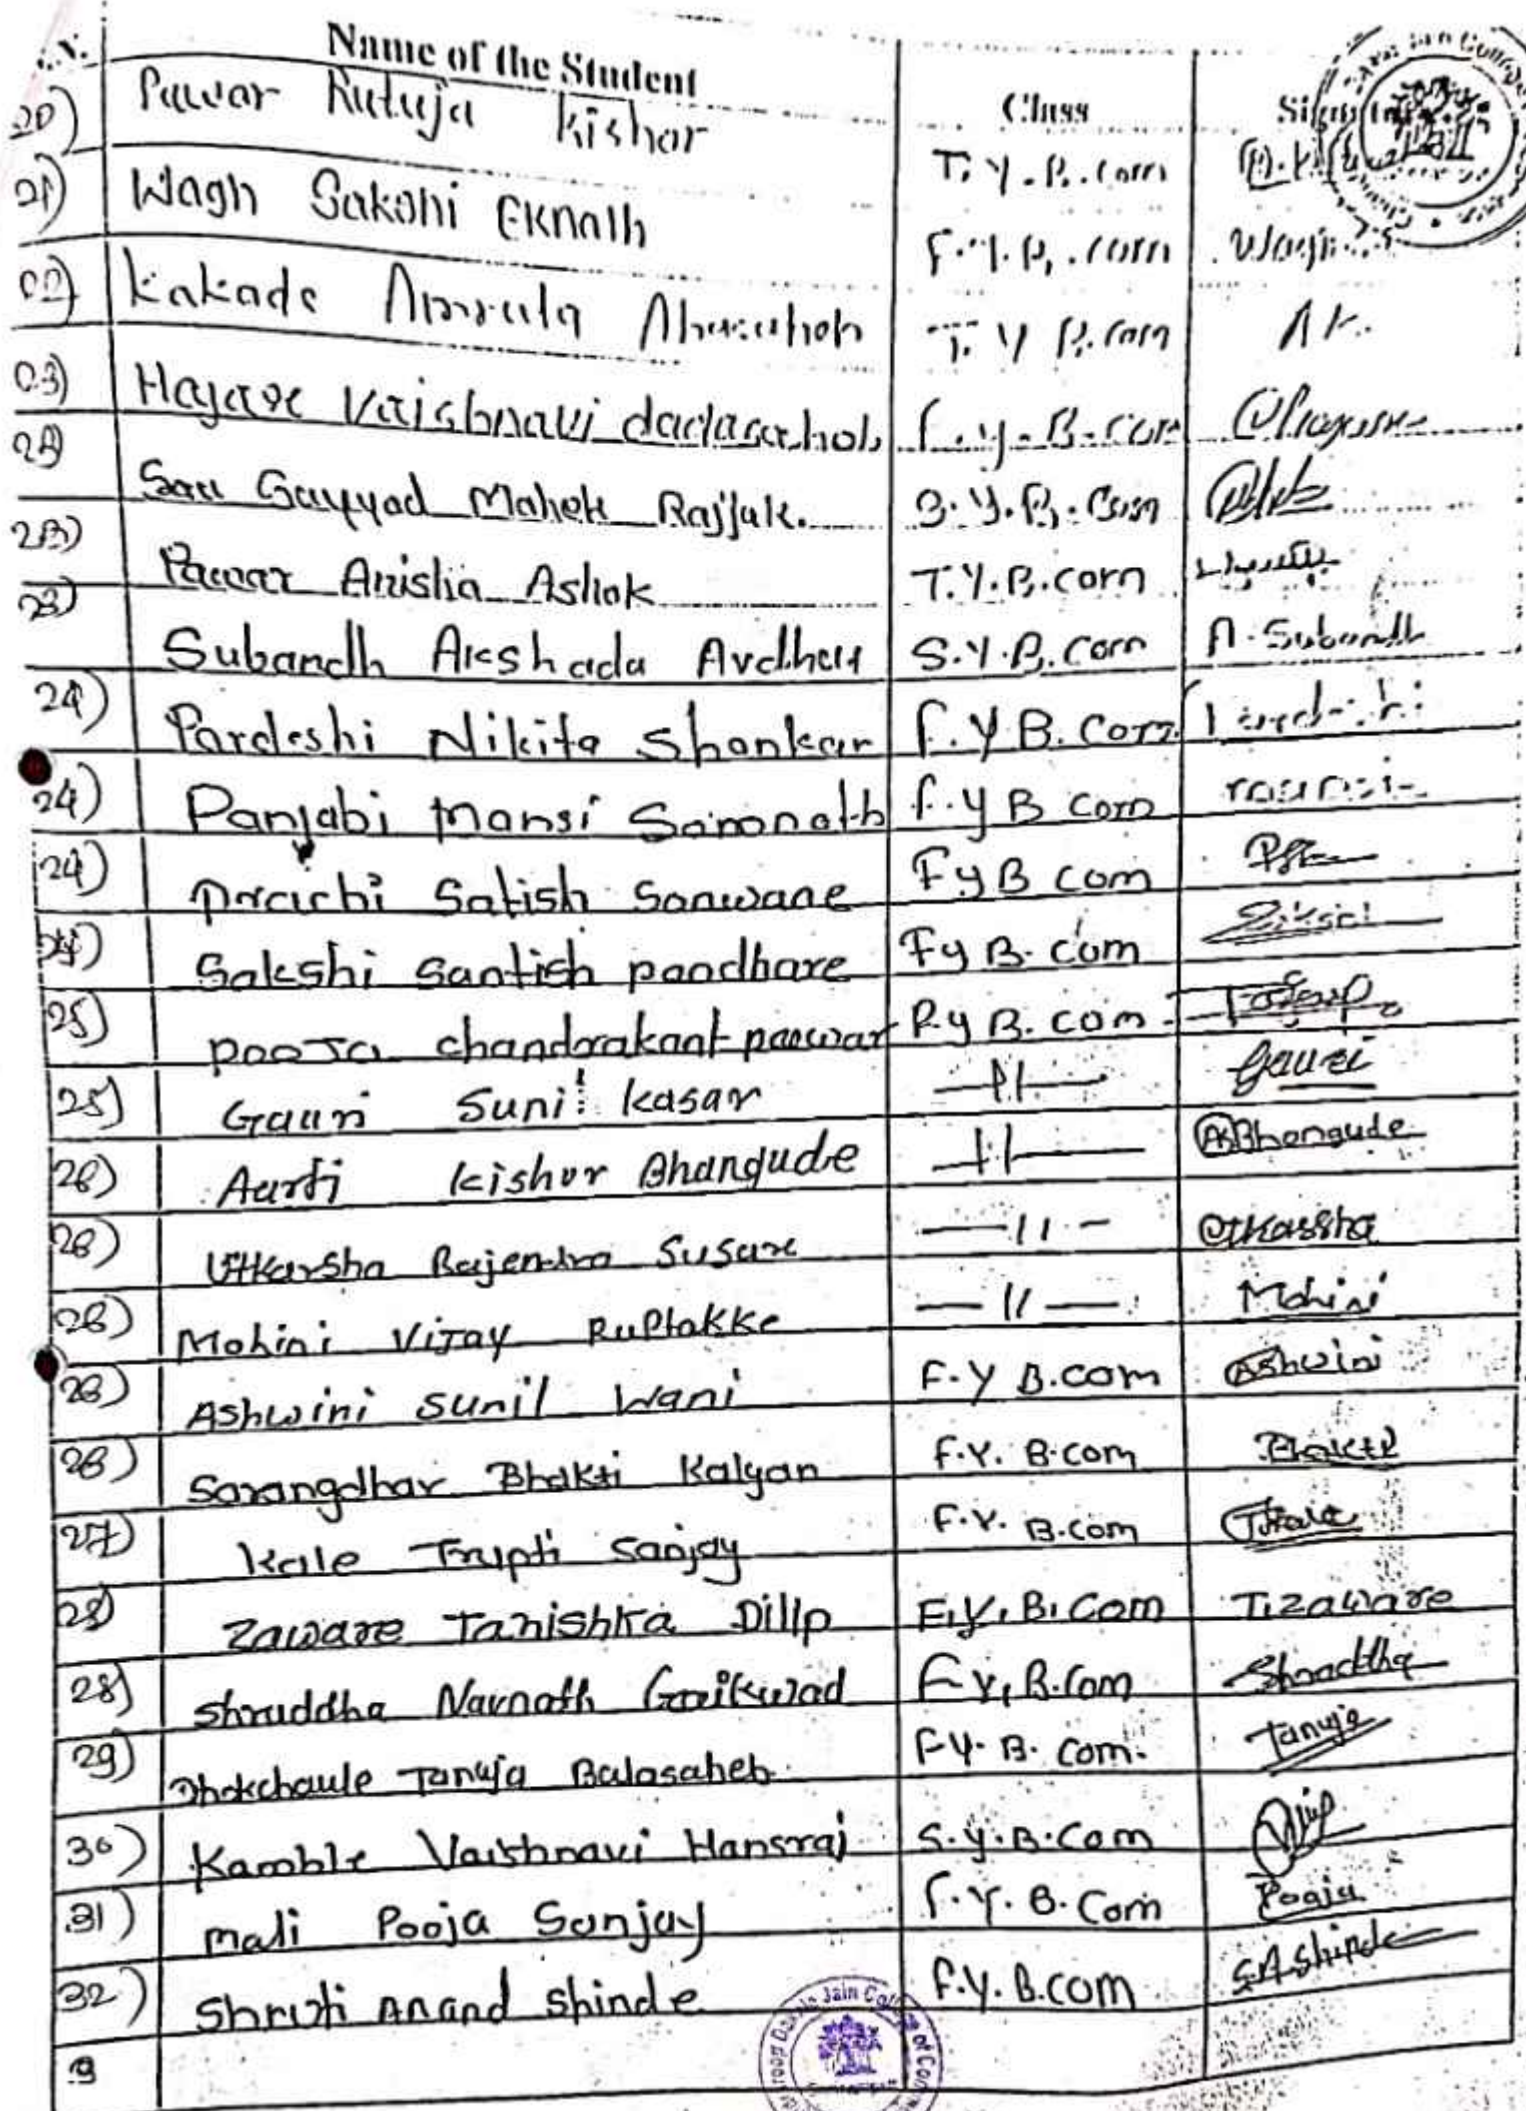 Name of the Student Class
20) Pawar Rutuja Kishor T.Y.B.com
21) Wagh Sakshi Eknath F.Y.B.com Wagh
22) Kakade Amruta T.Y B.com A K.
23) Hajare Vaishnavi dadasaheb F.y.B.com
Sayyad Mahek Rajjak. S.Y.B.Com
23) Pawar Anisha Ashok T.Y.B.com
23) Subandh Akshada Avdhut S.Y.B.com A.Subandh
24) Pardeshi Nikita Shankar F.Y.B.Com
24) Panjabi Mansi Somnath F.y B com
24) Prachi Satish Sonwane Fy B com
Sakshi Santish pandhare Fy B.com
25) pooja chandrakant pawar F.y B.com
25) Gauri Sunil kasar —11— Gauri
26) Aarti kishor Bhangude —11— ASBhongude
26) Utkarsha Rajendra Susare —11— Utkarsha
26) Mohini Vijay Ruptakke —11— Mohini
26) Ashwini sunil Wani F.Y B.com Ashwini
26) Sarangdhar Bhakti Kalyan F.Y. B.com Bhakti
27) Kale Trupti Sanjay F.Y. B.com TKale
28) Zaware Tanishka Dilip F.Y.B.Com T.Zaware
28) Shraddha Navnath Gaikwad F.Y.B.Com Shraddha
29) Dhokchaule Tanuja Balasaheb FY.B.Com. Tanuja
30) Kamble Vaishnavi Hansraj S.y.B.Com
31) mali Pooja Sanjay F.Y.B.Com Pooja
32) Shruti Anand Shinde F.Y.B.com S.A.Shinde
Jain College of Com